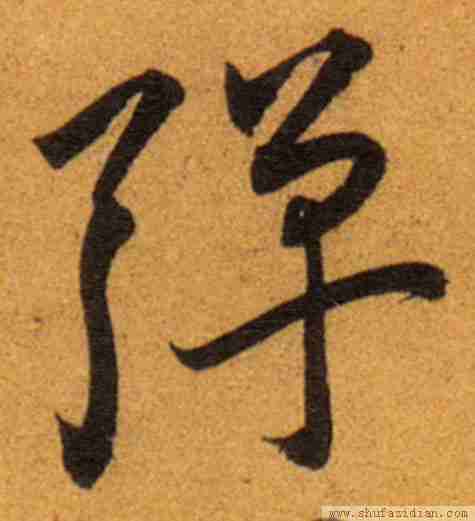 弹
www.shufazidian.com